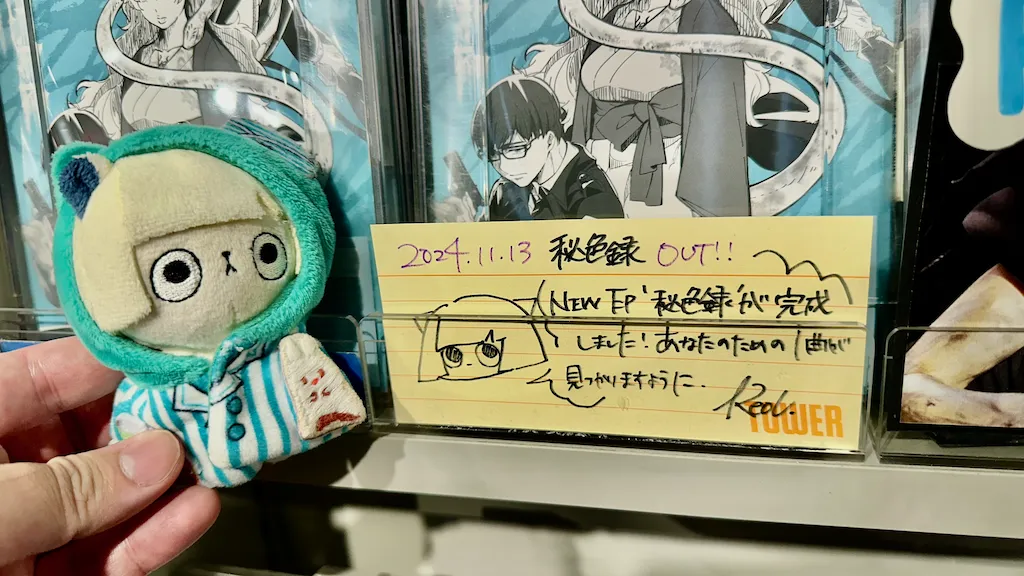 2024.11.13 秘色録 OUT!!
NEW EP '秘色録'が完成
しました!あなたのための1曲が
見つかりますように.
Reol.
TOWER